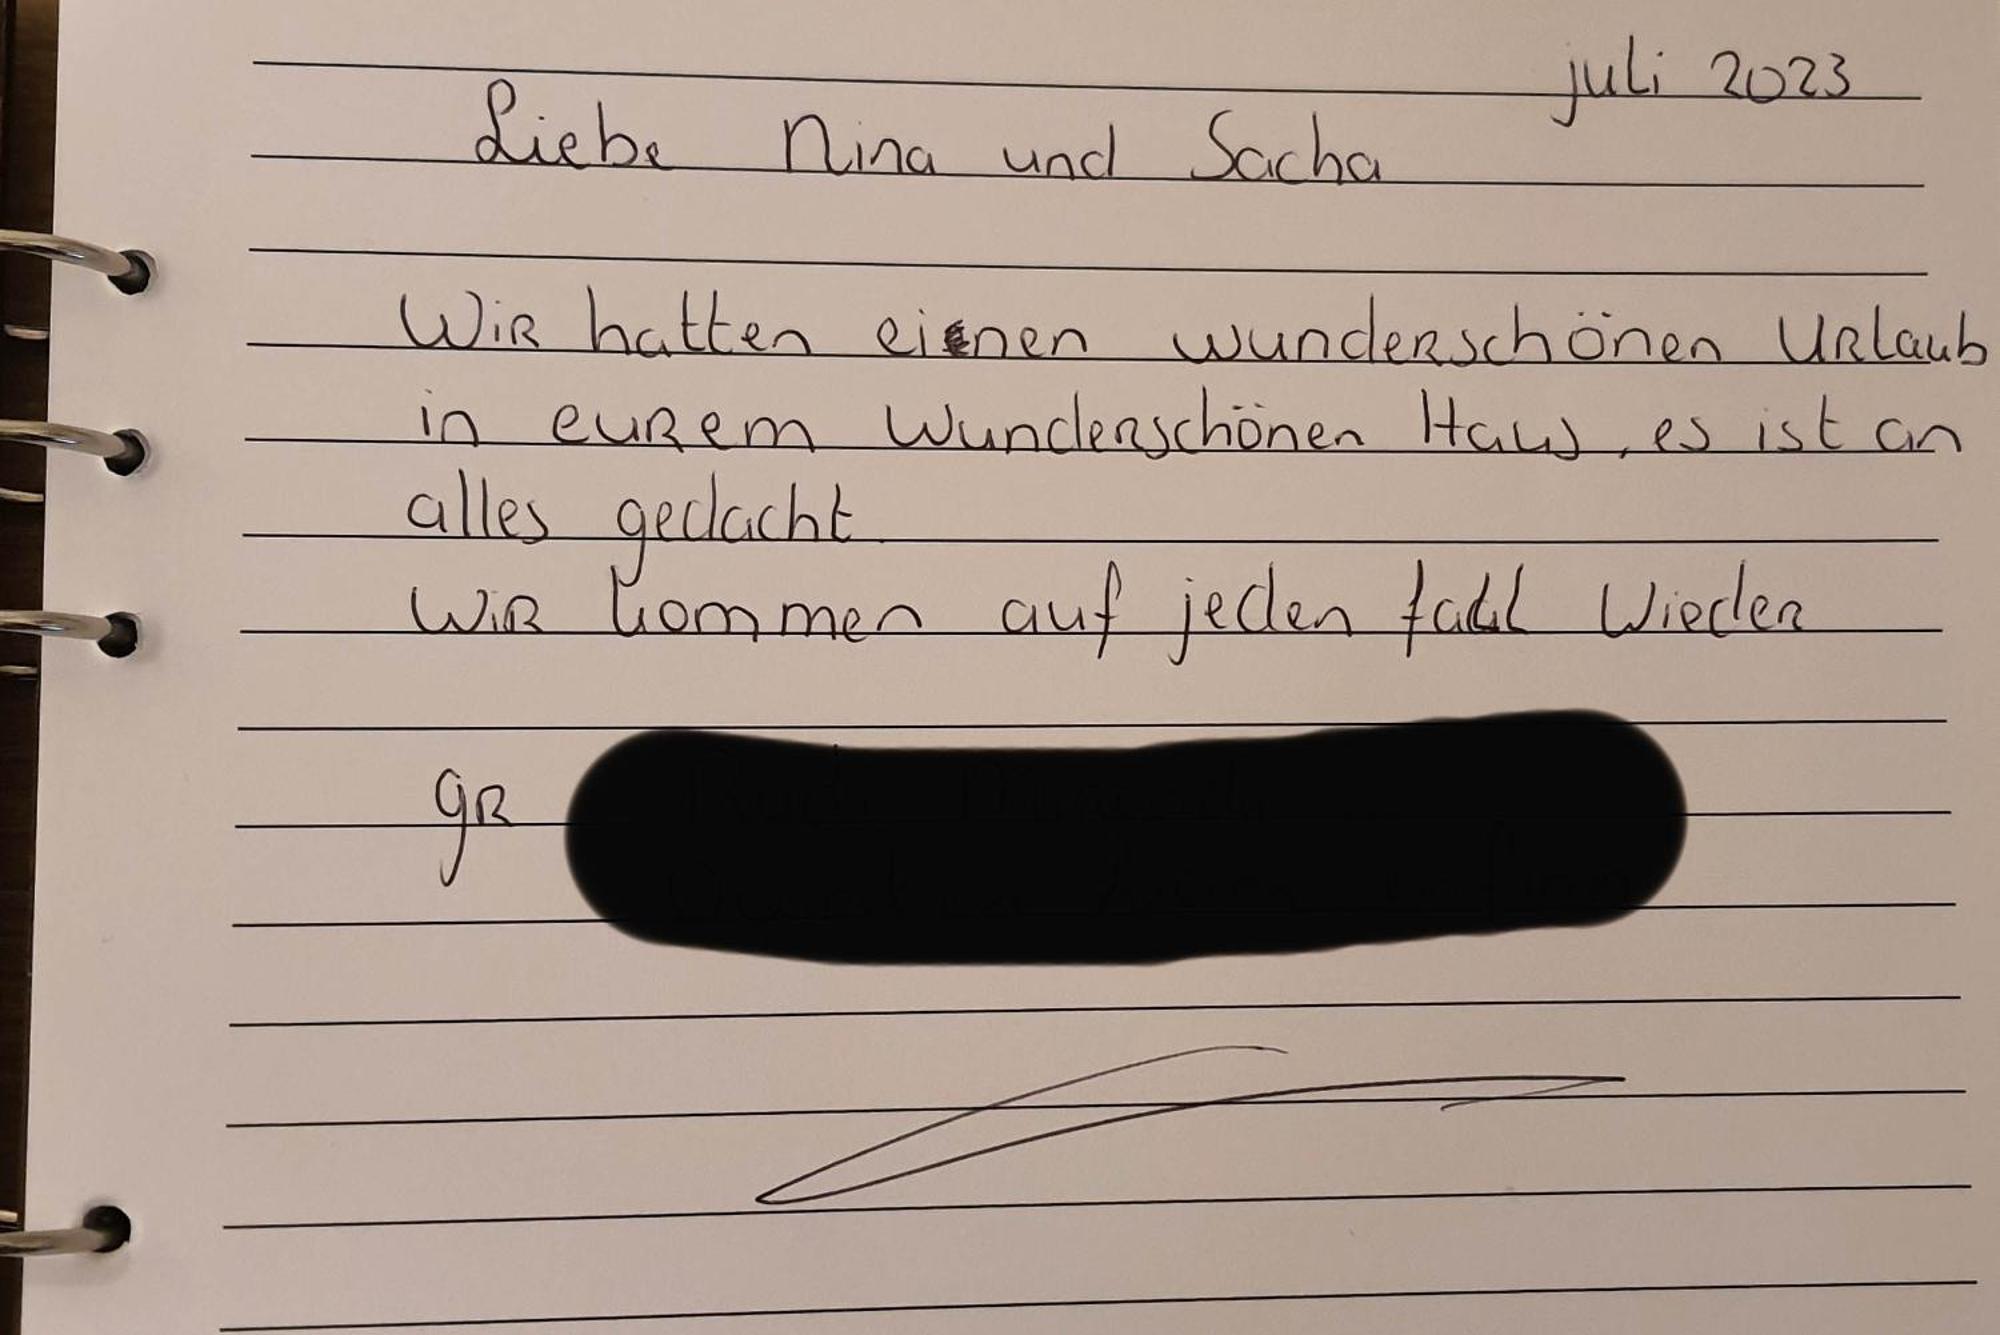 juli 2023
Liebe Nina und Sacha
Wir hatten einen wunderschönen Urlaub
in eurem wunderschönen Haus, es ist an
alles gedacht.
Wir kommen auf jeden fall Wieder
gr